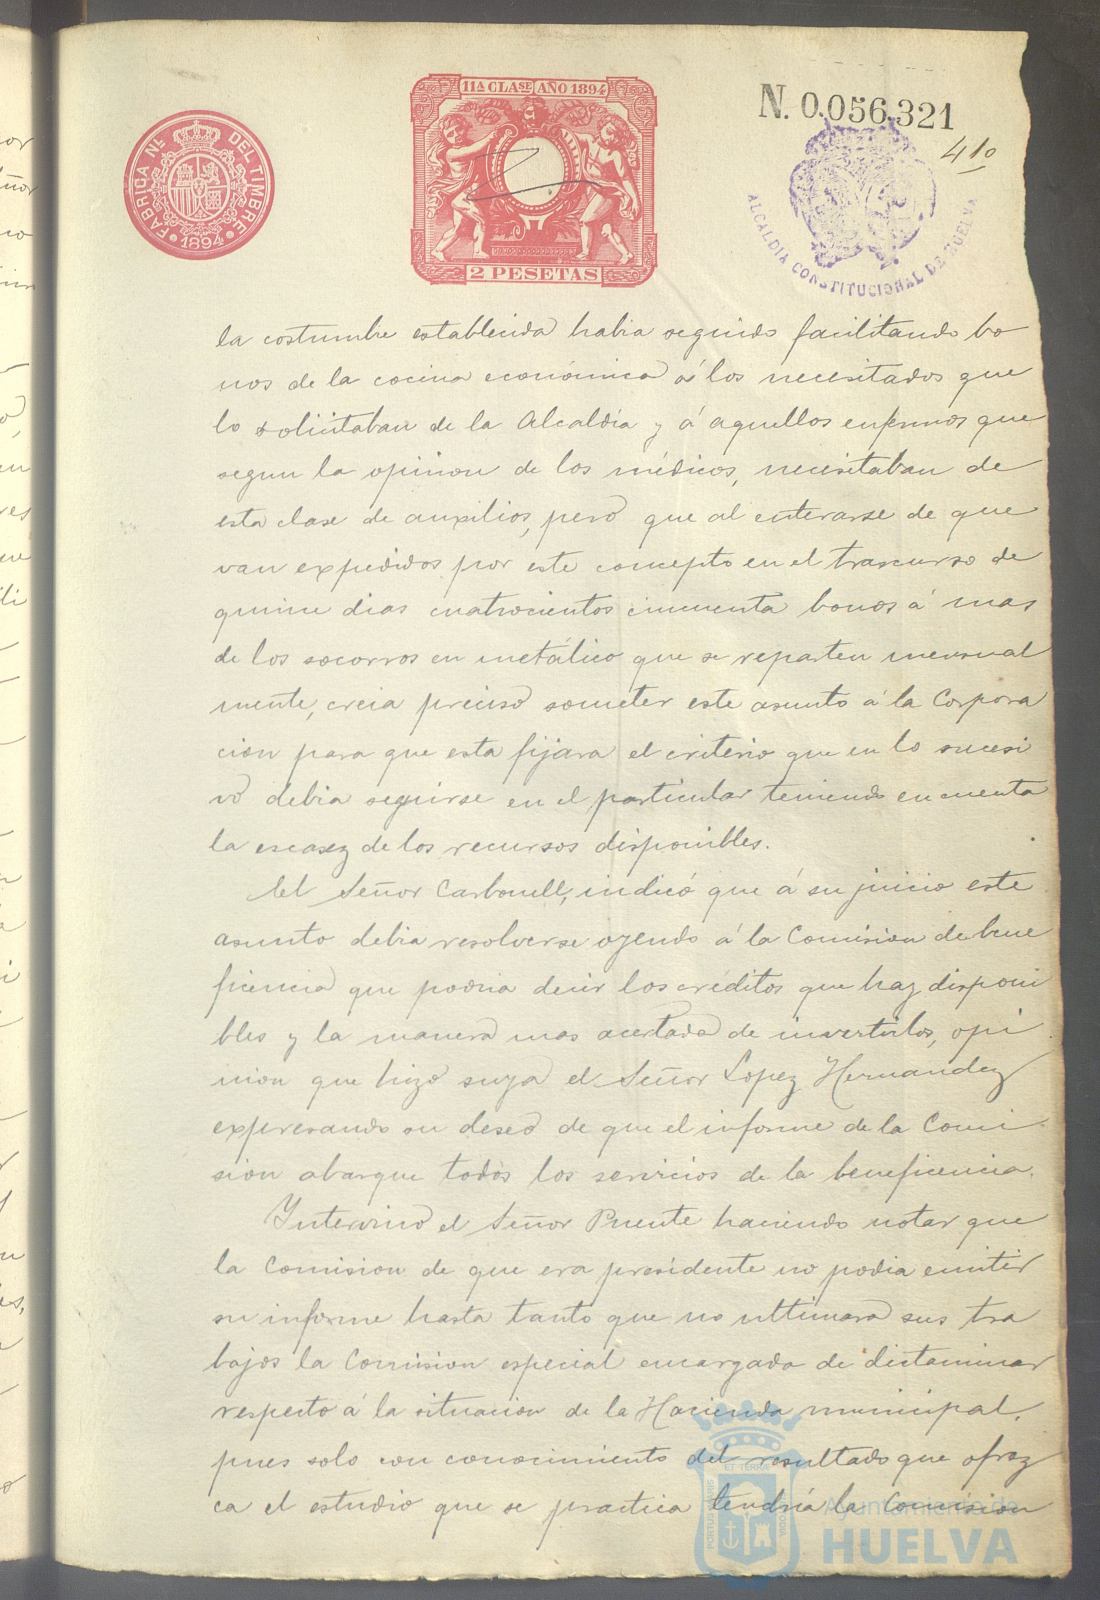 FABRICA NL. DEL TIMBRE
1894
11A CLASE AÑO 1894
2 PESETAS
N. 0.056.321
410
ALCALDIA CONSTITUCIONAL DE HUELVA
la costumbre establecida habia seguido facilitando bo
nos de la cocina económica á los necesitados que
lo solicitaban de la Alcaldía y á aquellos enfermos que
segun la opinion de los médicos, necesitaban de
esta clase de auxilios, pero que al enterarse de que
van expedidos por este concepto en el trascurso de
quince dias cuatrocientos cincuenta bonos á mas
de los socorros en metálico que se reparten mensual
mente, creia preciso someter este asunto á la Corpora
cion para que esta fijara el criterio que en lo sucesi
vo debia seguirse en el particular teniendo en cuenta
la escasez de los recursos disponibles.
El Señor Carbonell, indicó que á su juicio este
asunto debia resolverse oyendo á la Comision de bene
ficencia que podria decir los créditos que hay disponi
bles y la manera mas acertada de invertirlos, opi
nion que hizo suya el Señor Lopez Hernandez
expresando su deseo de que el informe de la Comi
sion abarque todos los servicios de la beneficencia.
Intervino el Señor Puente haciendo notar que
la Comision de que era presidente no podia emitir
su informe hasta tanto que no ultimara sus tra
bajos la Comision especial encargada de dictaminar
respecto á la situacion de la Hacienda municipal,
pues solo con conocimiento del resultado que ofrez
ca el estudio que se practica tendria la Comision
Ayuntamiento de
HUELVA